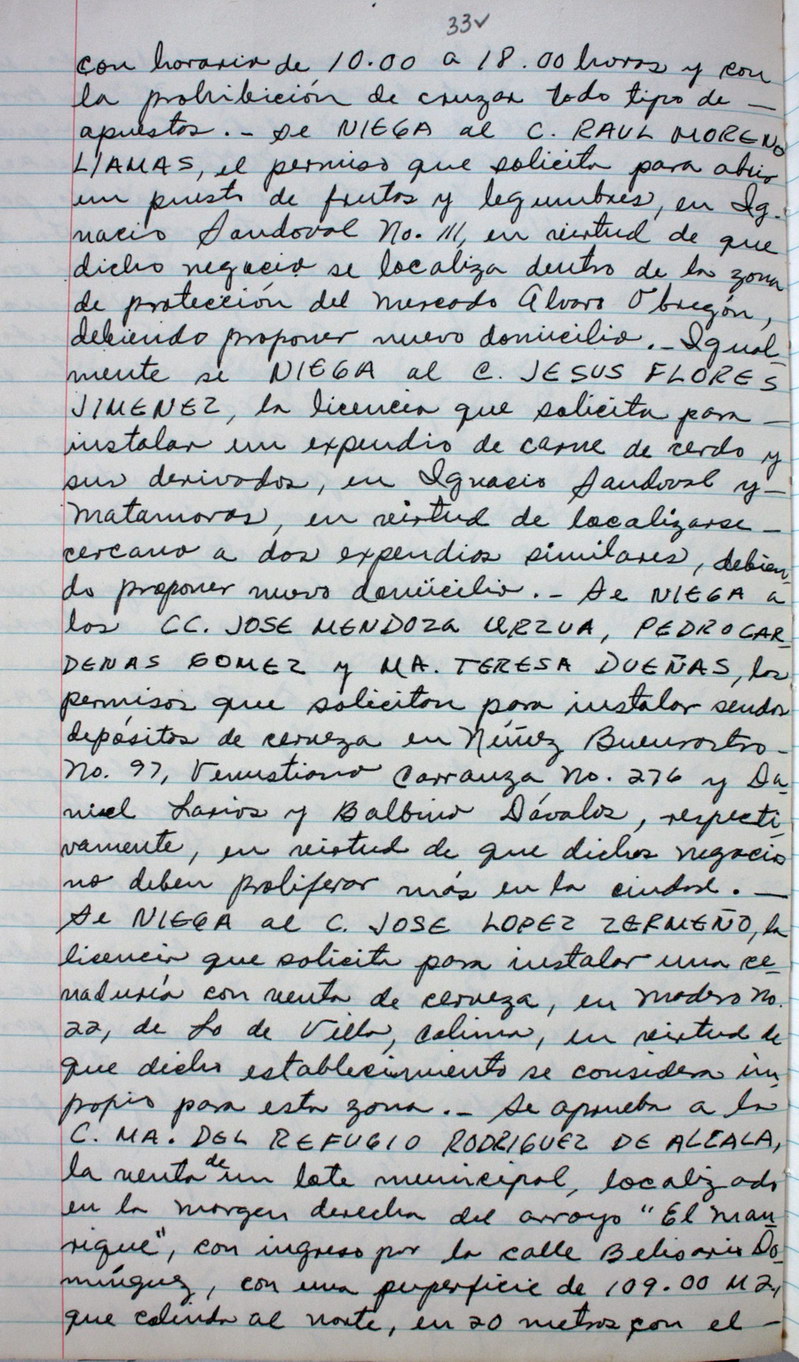 33v
con horario de 10.00 a 18.00 horas y con
la prohibición de cruzar todo tipo de —
apuestas.- Se NIEGA al C. RAUL MORENO
LLAMAS, el permiso que solicita para abrir
un puesto de frutas y legumbres, en Ig-
nacio Sandoval No. 111, en virtud de que
dicho negocio se localiza dentro de la zona
de protección del Mercado Alvaro Obregón,
debiendo proponer nuevo domicilio.- Igual-
mente se NIEGA al C. JESUS FLORES
JIMENEZ, la licencia que solicita para —
instalar un expendio de carne de cerdo y
sus derivados, en Ignacio Sandoval y —
Matamoros, en virtud de localizarse —
cercano a dos expendios similares, debien-
do proponer nuevo domicilio.- Se NIEGA a
los CC. JOSE MENDOZA URZUA, PEDRO CAR-
DENAS GOMEZ y MA. TERESA DUEÑAS, los
permisos que solicitan para instalar sendos
depósitos de cerveza en Núñez Buenrostro —
No. 97, Venustiano Carranza No. 276 y Da-
niel Larios y Balbino Dávalos, respecti-
vamente, en virtud de que dichos negocios
no deben proliferar más en la ciudad. —
Se NIEGA al C. JOSE LOPEZ ZERMEÑO, la
licencia que solicita para instalar una ce-
naduría con venta de cerveza, en Madero No.
22, de Lo de Villa, Colima, en virtud de
que dicho establecimiento se considera im-
propio para esta zona.- Se aprueba a la
C. MA. DEL REFUGIO RODRIGUEZ DE ALCALA,
la venta de un lote municipal, localizado
en la margen derecha del arroyo "El Man-
rique", con ingreso por la calle Belisario Do-
mínguez, con una superficie de 109.00 M2,
que colinda al norte, en 20 metros con el —